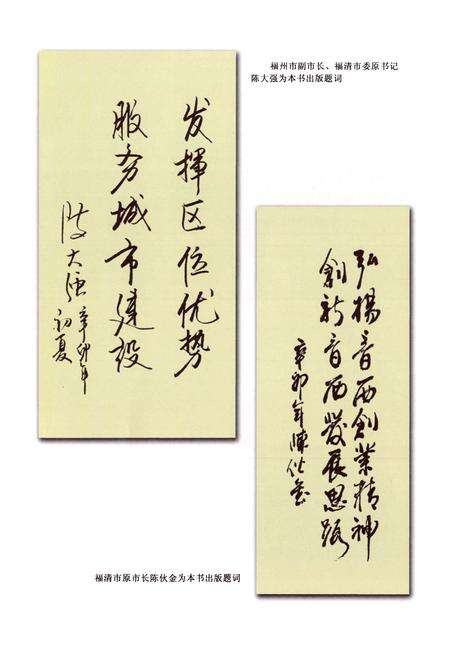 福州市副市长、福清市委原书记
陈大强为本书出版题词
发揮区位优势
服务城市建设
陈大强 辛卯年
初夏
弘揚音西創業精神
創新音西發展思路
辛卯年陳伙金
福清市原市长陈伙金为本书出版题词